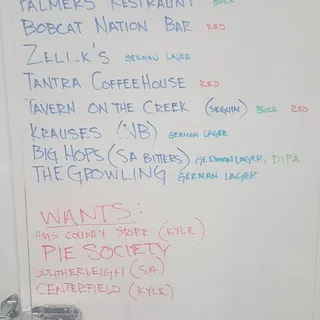 PALMERS RESTRAUNT BOCK
BOBCAT NATION BAR RED
ZELICK'S GERMAN LAGER
TANTRA COFFEEHOUSE RED
TAVERN ON THE CREEK (SEGUIN) BOCK RED
KRAUSES (NB) GERMAN LAGER
BIG HOPS (SA BITTERS) GERMAN LAGER, DIPA
THE GROWLING GERMAN LAGER
WANTS:
HAYS COUNTY STORE (KYLE)
PIE SOCIETY
SOUTHERLEIGH (SA)
CENTERFIELD (KYLE)